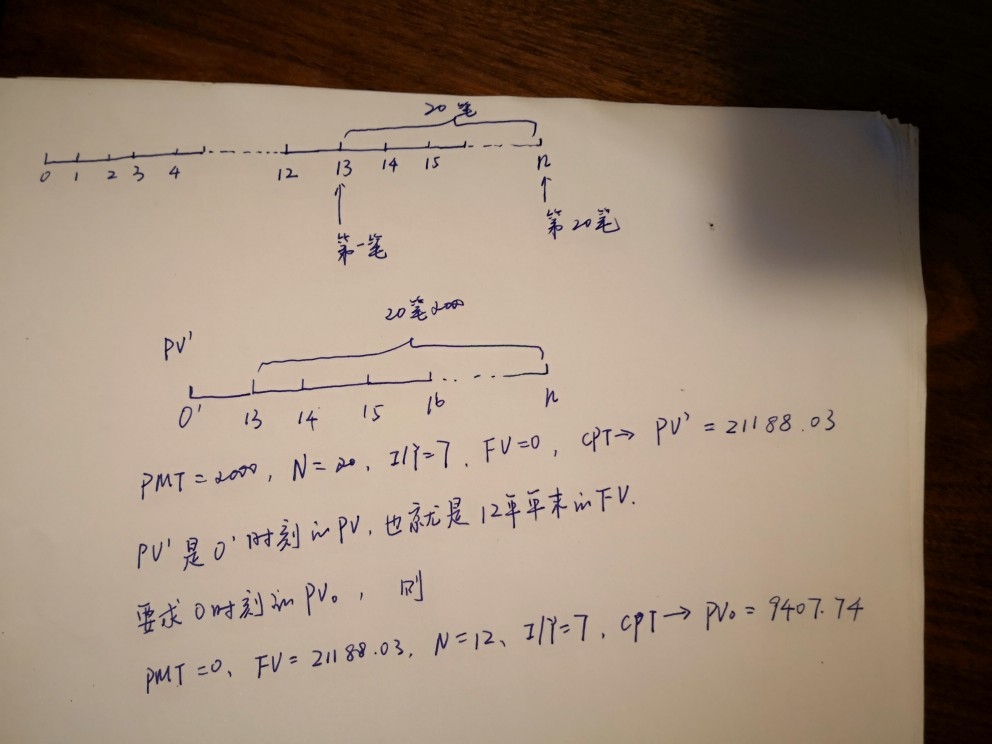 20笔
0 1 2 3 4 12 13 14 15 n
第一笔 第20笔
20笔2000
PV'
0' 13 14 15 16 n
PMT=2000, N=20, I/Y=7, FV=0, CPT→ PV'=21188.03
PV'是0'时刻的PV,也就是12年年末的FV.
要求0时刻的PV₀, 则
PMT=0、FV=21188.03, N=12、I/Y=7, CPT→ PV₀=9407.74